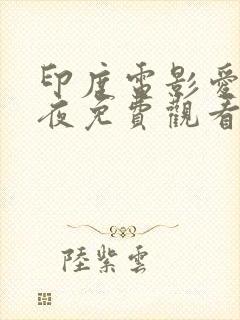 印度電影愛
夜免費觀看
陸紫雲